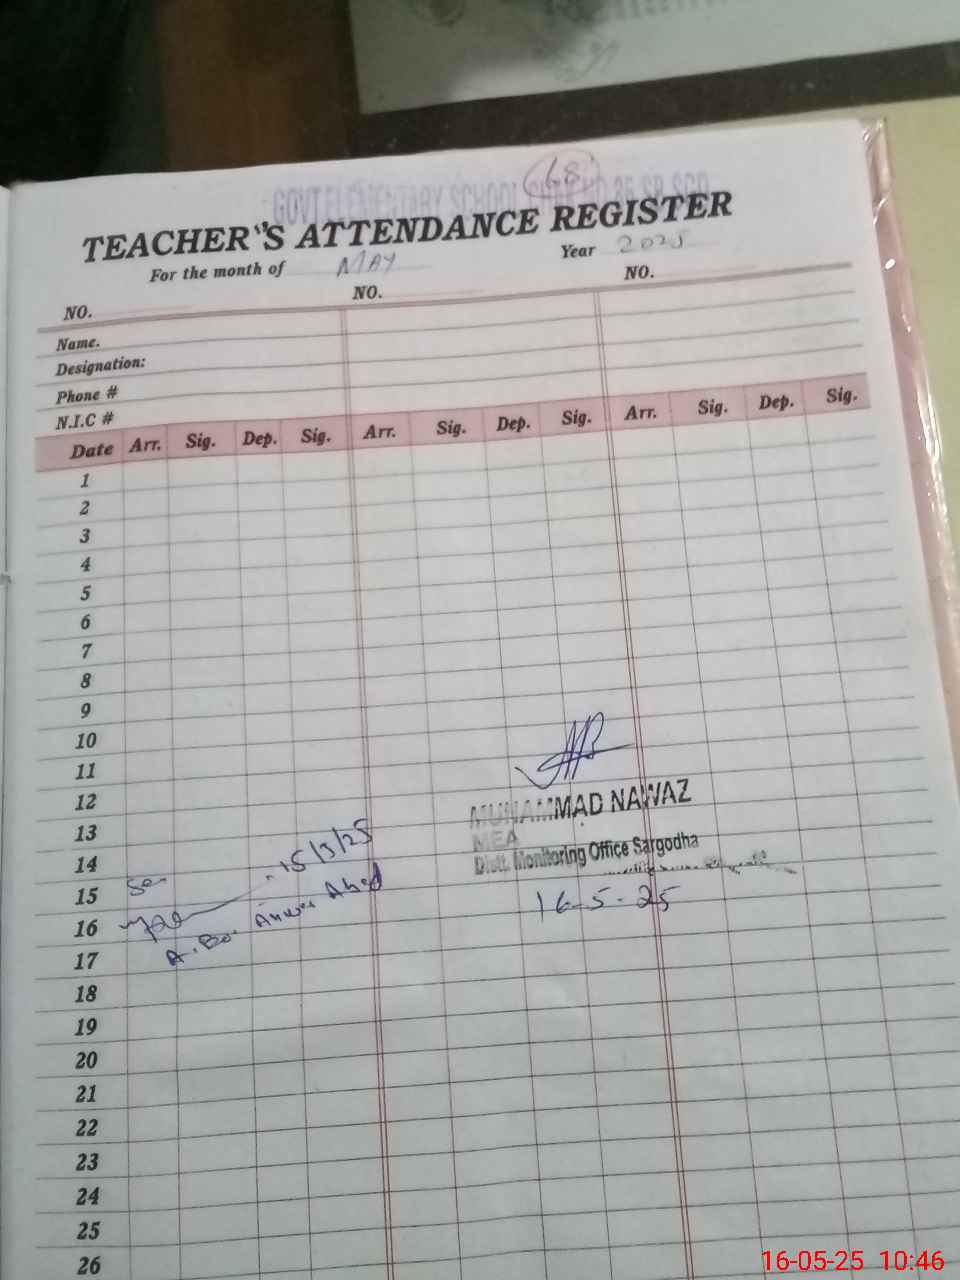 68
GOVT ELEMENTARY SCHOOL CHAK NO 35 SB SGD
TEACHER'S ATTENDANCE REGISTER
For the month of MAY Year 2025
NO. NO. NO.
Name.
Designation:
Phone #
N.I.C #
Date Arr. Sig. Dep. Sig. Arr. Sig. Dep. Sig. Arr. Sig. Dep. Sig.
1
2
3
4
5
6
7
8
9
10
11
12
13
14
15
16
17
18
19
20
21
22
23
24
25
26
15/5/25
MUHAMMAD NAWAZ
MEA
Distt. Monitoring Office Sargodha
16-5-25
16-05-25 10:46